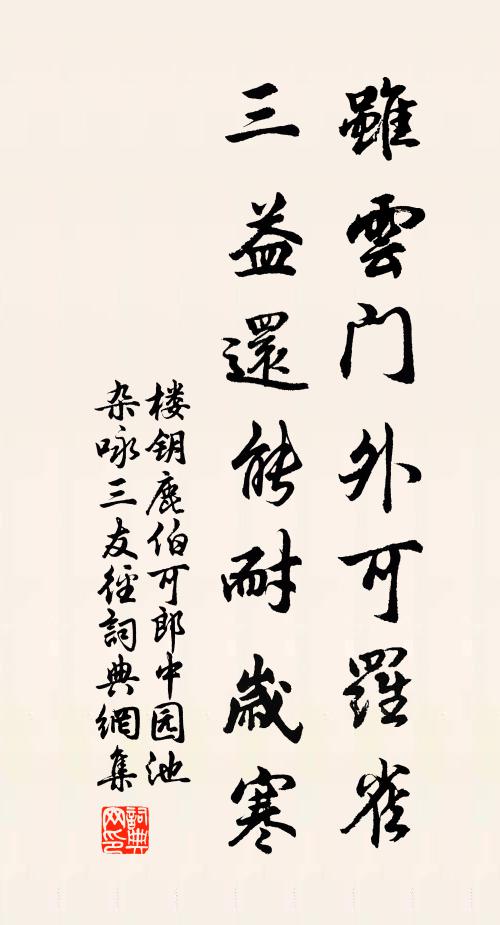 雖雲門外可羅雀
三益還能耐歲寒
楼钥鹿伯可郎中园池
杂咏三友徑詞典網集
詞典网印